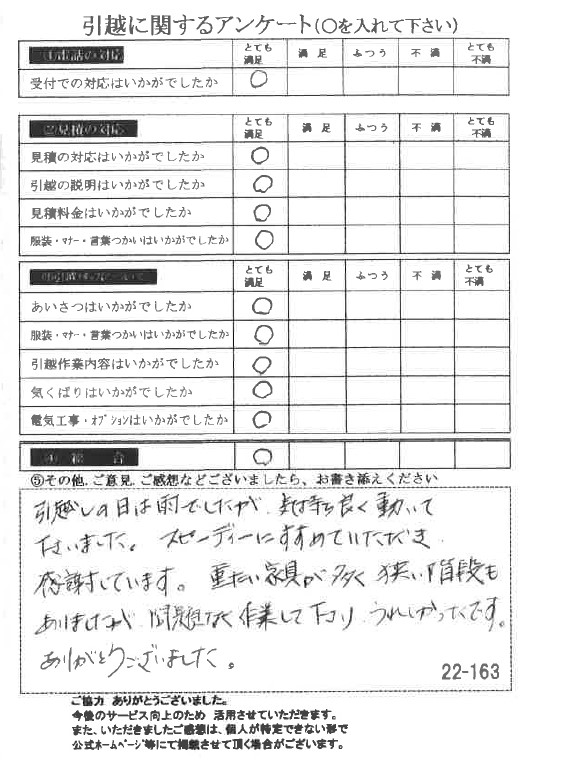 引越に関するアンケート(○を入れて下さい)
①電話の対応 とても満足 満足 ふつう 不満 とても不満
受付での対応はいかがでしたか ○
②見積の対応 とても満足 満足 ふつう 不満 とても不満
見積の対応はいかがでしたか ○
引越の説明はいかがでしたか ○
見積料金はいかがでしたか ○
服装・マナー・言葉つかいはいかがでしたか ○
とても満足 満足 ふつう 不満 とても不満
あいさつはいかがでしたか ○
服装・マナー・言葉つかいはいかがでしたか ○
引越作業内容はいかがでしたか ○
気くばりはいかがでしたか ○
電気工事・オプションはいかがでしたか ○
④総合 ○
⑤その他、ご意見、ご感想などございましたら、お書き添えください
引越しの日は雨でしたが、気持ち良く動いて
下さいました。スピーディーにすすめていただき、
感謝しています。重たい家具が多く狭い階段も
ありましたが、問題なく作業して下さり、うれしかったです。
ありがとうございました。
22-163
ご協力 ありがとうございました。
今後のサービス向上のため 活用させていただきます。
また、いただきましたご感想は、個人が特定できない形で
公式ホームページ等にて掲載させて頂く場合がございます。